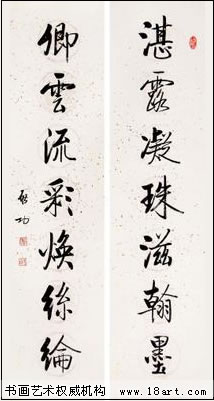 湛露凝珠滋翰墨
卿雲流彩焕絲綸
啟功
书画艺术权威机构 www.18art.com